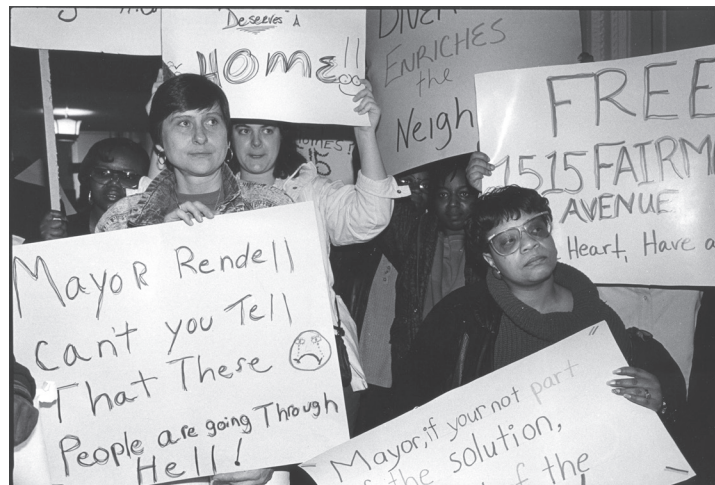 Deserves A
HOME!!
ENRICHES
the
Neigh
FREE
1515 FAIRM
AVENUE
Heart, Have a
Mayor Rendell
Can't you Tell
That These
People are going Through
Hell!
Mayor, if your not part
of the solution,
of the